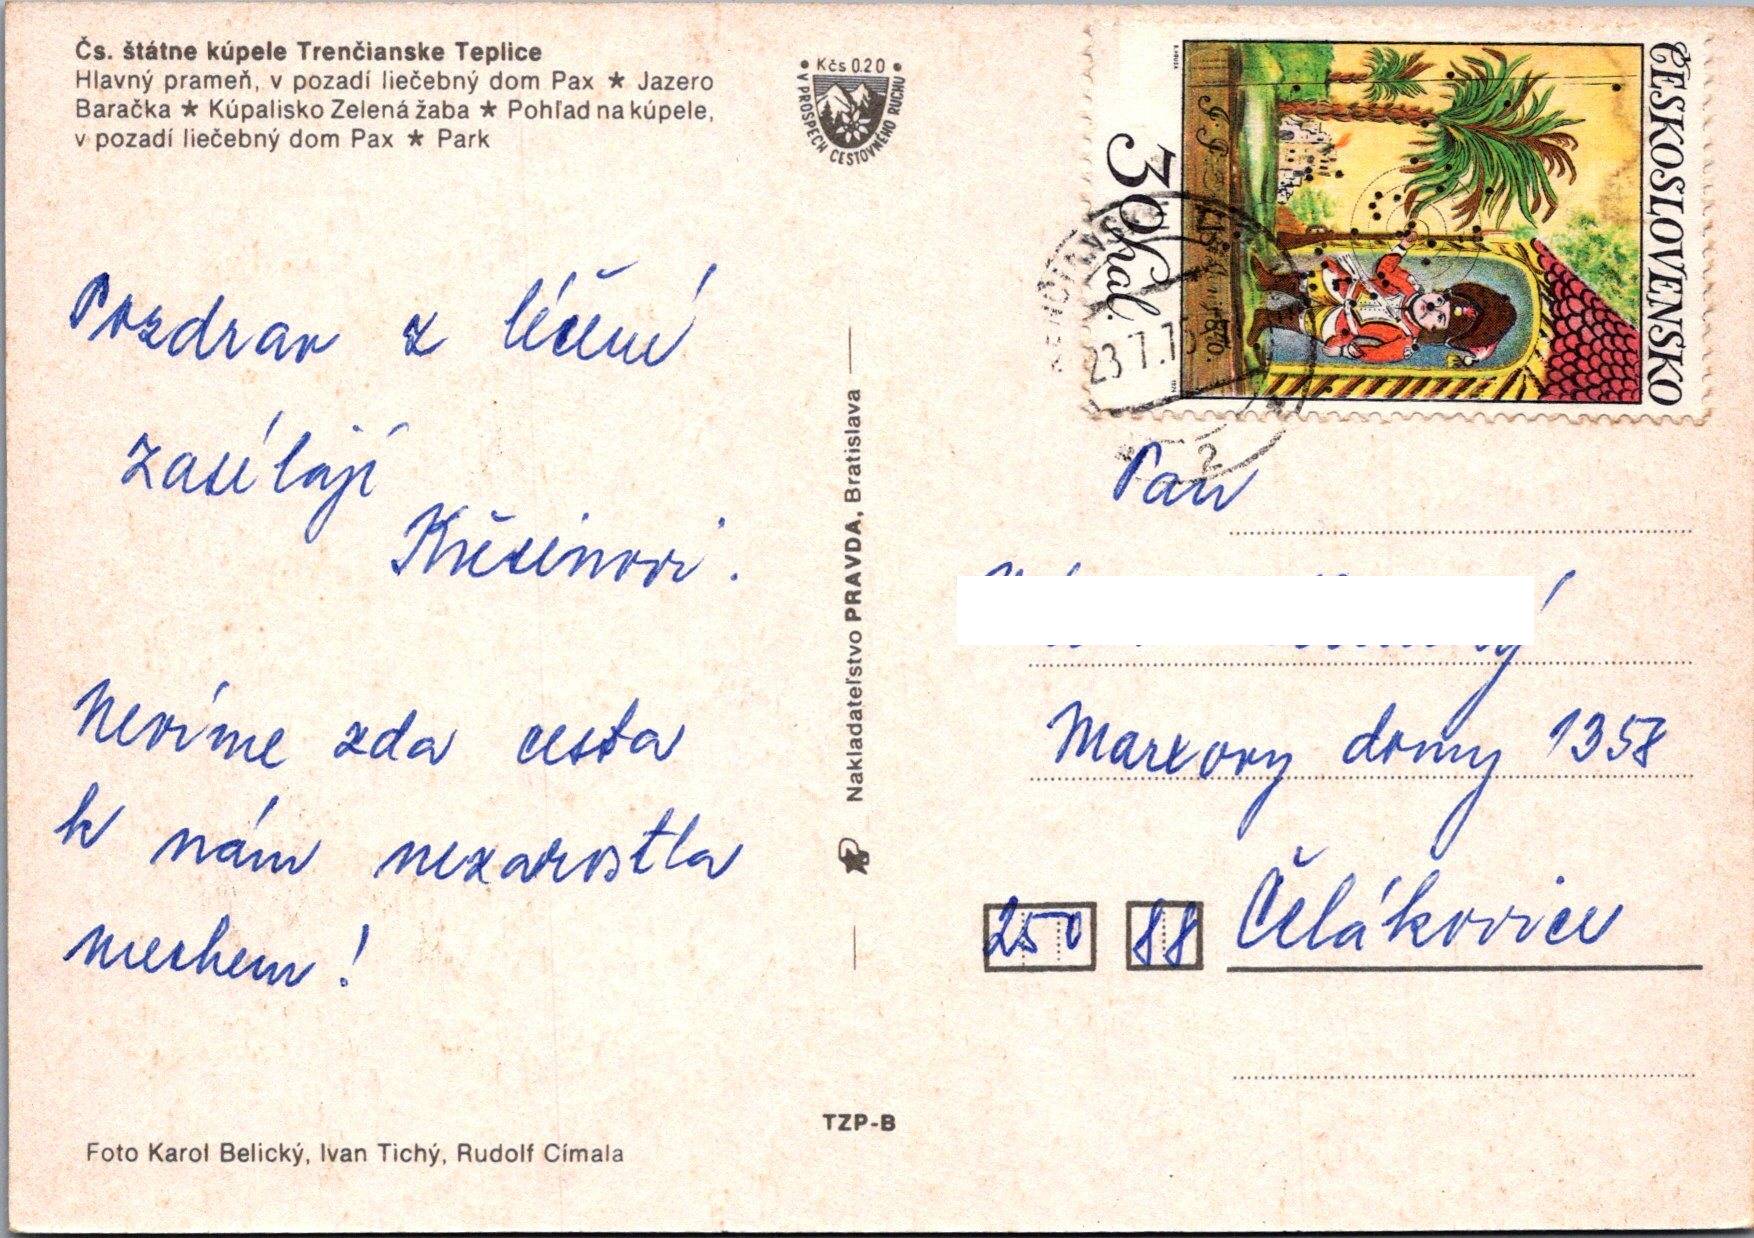 Čs. štátne kúpele Trenčianske Teplice
Hlavný prameň, v pozadí liečebný dom Pax ★ Jazero
Baračka ★ Kúpalisko Zelená žaba ★ Pohľad na kúpele,
v pozadí liečebný dom Pax ★ Park
• Kčs 0.20 •
V PROSPECH CESTOVNÉHO RUCHU
ČESKOSLOVENSKO
30 hal.
23.7.75
Pozdrav z léčení
zasílají
Křesinovi.
Nevíme zda cesta
k nám nezarostla
mechem!
Nakladateľstvo PRAVDA, Bratislava
Pan
Marxovy domy 1358
250 88 Čelákovice
TZP-B
Foto Karol Belický, Ivan Tichý, Rudolf Címala